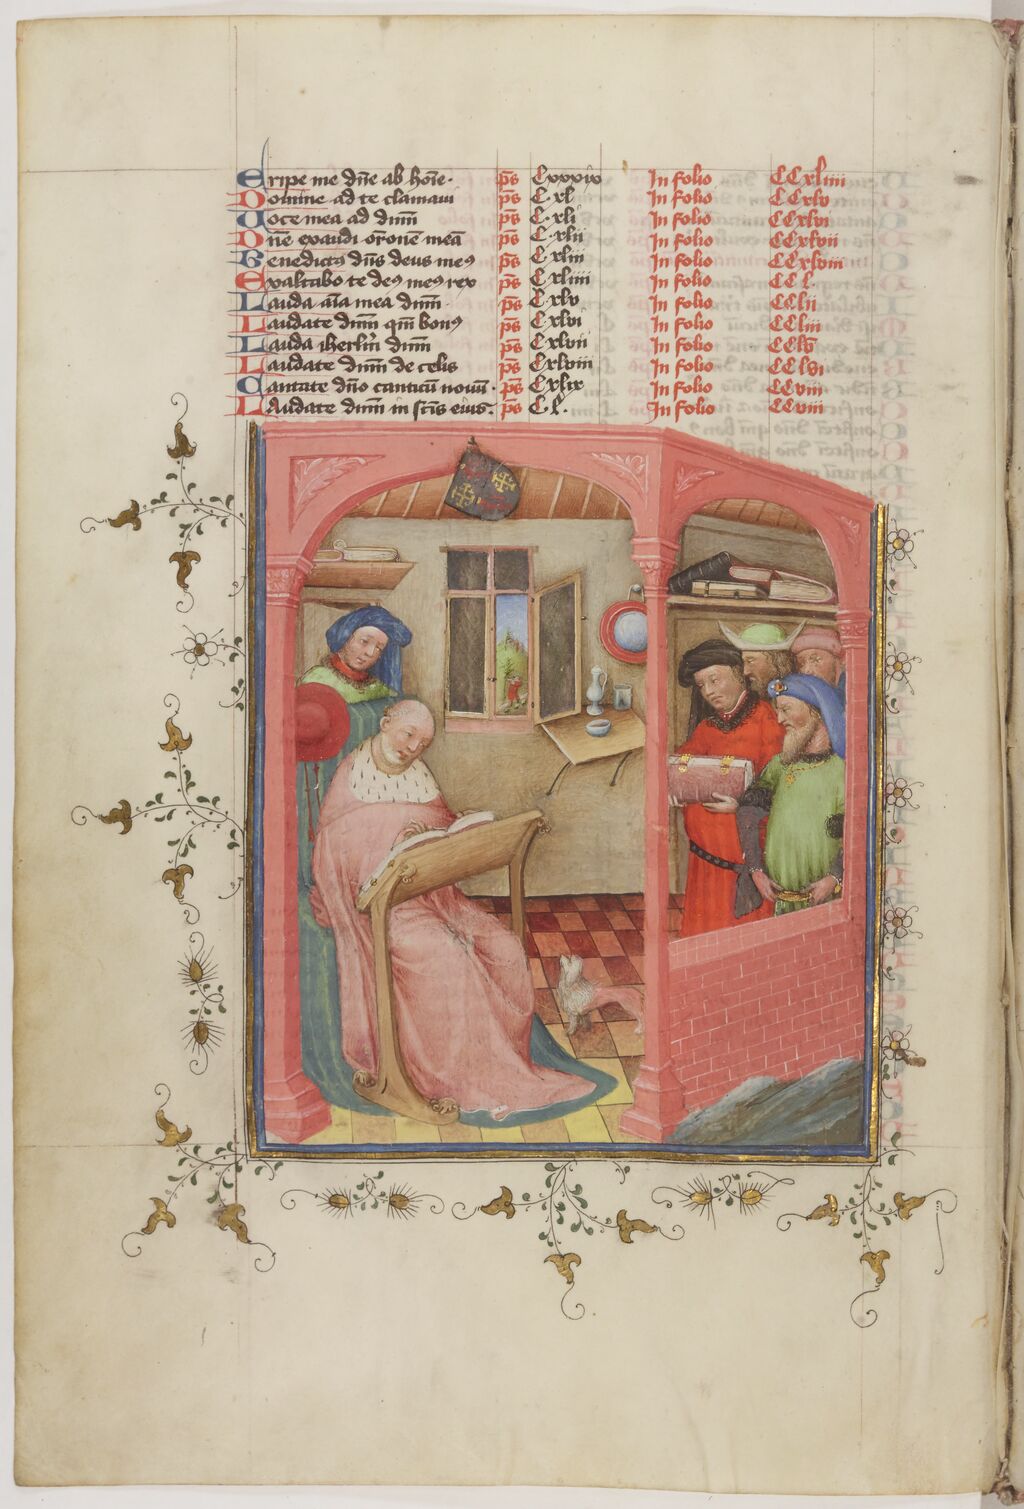 Eripe me dn̄e ab hoīe. p̄s Cxxxix In folio CCxliiii
Domine ad te clamavi p̄s C.xl In folio CCxlv
Uoce mea ad dn̄m p̄s C.xli In folio CCxlvi
Dn̄e exaudi or̄onem meā p̄s C.xlii In folio CCxlvii
Benedictꝰ dn̄s deus meꝰ p̄s C.xliii In folio CCxlviii
Exaltabo te deꝰ meꝰ rex p̄s C.xliiii In folio CC l.
Lauda aīa mea dn̄m p̄s C.xlv In folio CClii
Laudate dn̄m qm̄ bonꝰ p̄s C.xlvi In folio CCliii
Lauda iherlm̄ dn̄m p̄s C.xlvii In folio
Laudate dn̄m de celis p̄s C.xlviii In folio CClvi
Cantate dn̄o canticū novū. p̄s C.xlix In folio CCviii
Laudate dn̄m in sc̄is eius. p̄s C.l. In folio CCviii